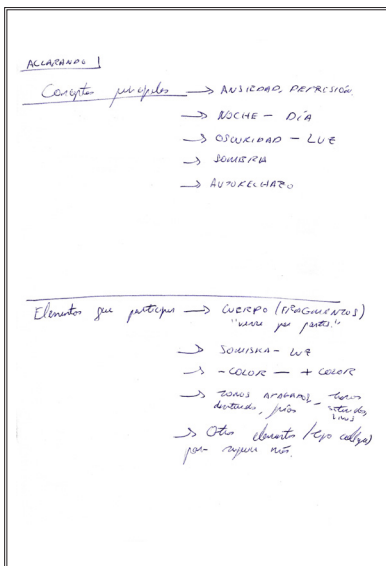 ACLARANDO
Conceptos principales → ANSIEDAD, DEPRESIÓN.
→ NOCHE - DÍA
→ OSCURIDAD - LUZ
→ SOMBRA
→ AUTORECHAZO
Elementos que participan → CUERPO (FRAGMENTOS)
"verse por partes."
→ SOMBRA - LUZ
→ -COLOR - + COLOR
→ TONOS APAGADOS, - tonos
fríos saturados
→ Otros elementos (tipo collage)
para sugerir más.